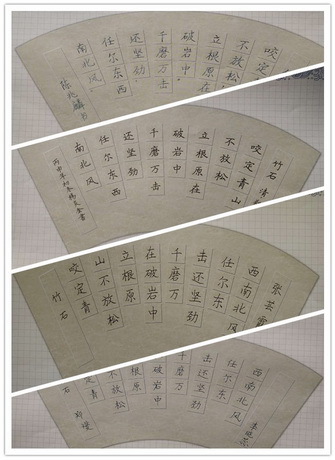 咬定
不放松
立根原在
破岩中
千磨万击
还坚劲
任尔东西
南北风
陈兆麟书
竹石 清
咬定青山
不放松
立根原在
破岩中
千磨万击
还坚劲
任尔东西
南北风
丙申年初冬
竹石
咬定青
山不放松
立根原
在破岩中
千磨万
击还坚劲
任尔东
西南北风
张芸
石 郑燮
定青
不放松
根原
破岩中
磨万
击还坚劲
任尔东
西南北风